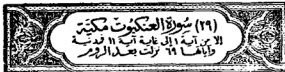 (٢٩) سورة العنكبوت مكية
إلا من آية ١ إلى غاية آية ١١ فمدنية
وآياتها ٦٩ نزلت بعد الروم